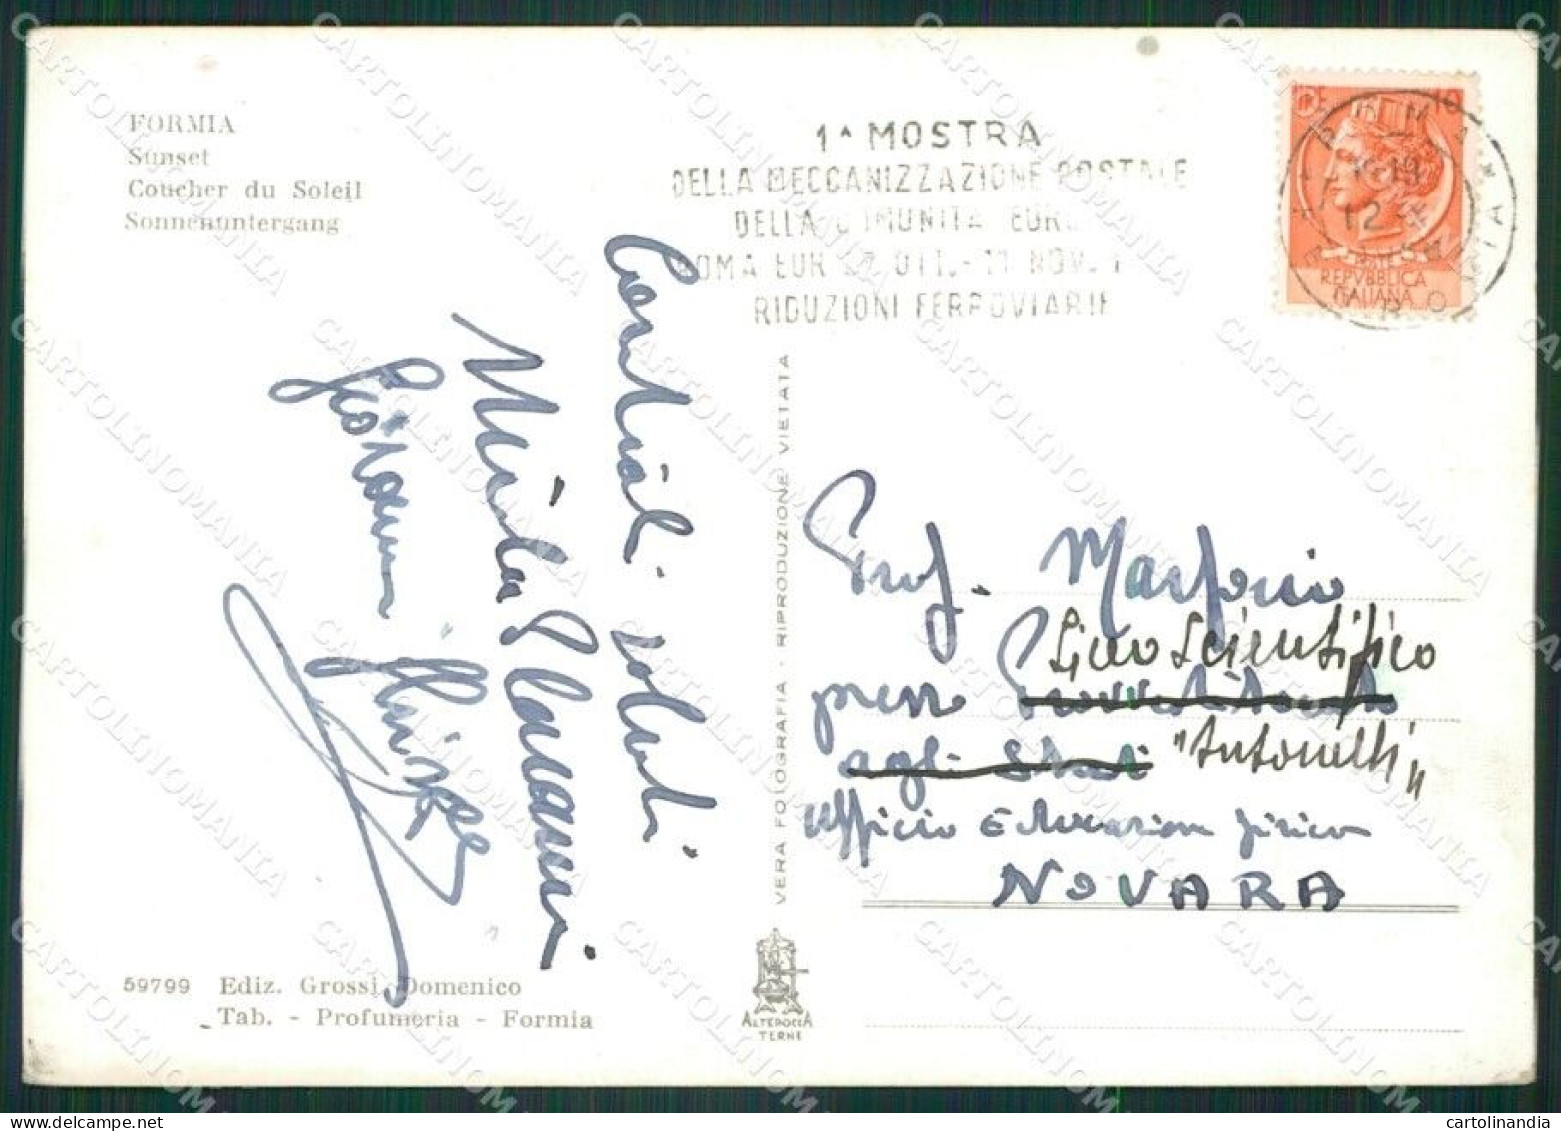 FORMIA
Sunset
Coucher du Soleil
Sonnenuntergang
1ª MOSTRA
DELLA MECCANIZZAZIONE POSTALE
DELLA COMUNITA' EURO
ROMA EUR 27 OTT. - 11 NOV. 1
RIDUZIONI FERROVIARIE
10
REPVBBLICA
ITALIANA
Cordiali saluti
VERA FOLOGRAFIA - RIPRODUZIONE VIETATA
Prof. Marforio
Liceo Scientifico
presso Provveditorato
agli Studi "Antonelli"
Ufficio Educazione fisica
NOVARA
59799 Ediz. Grossi Domenico
Tab. - Profumeria - Formia
ALTEROCCA
TERNI
CARTOLINOMANIA
cartolinandia